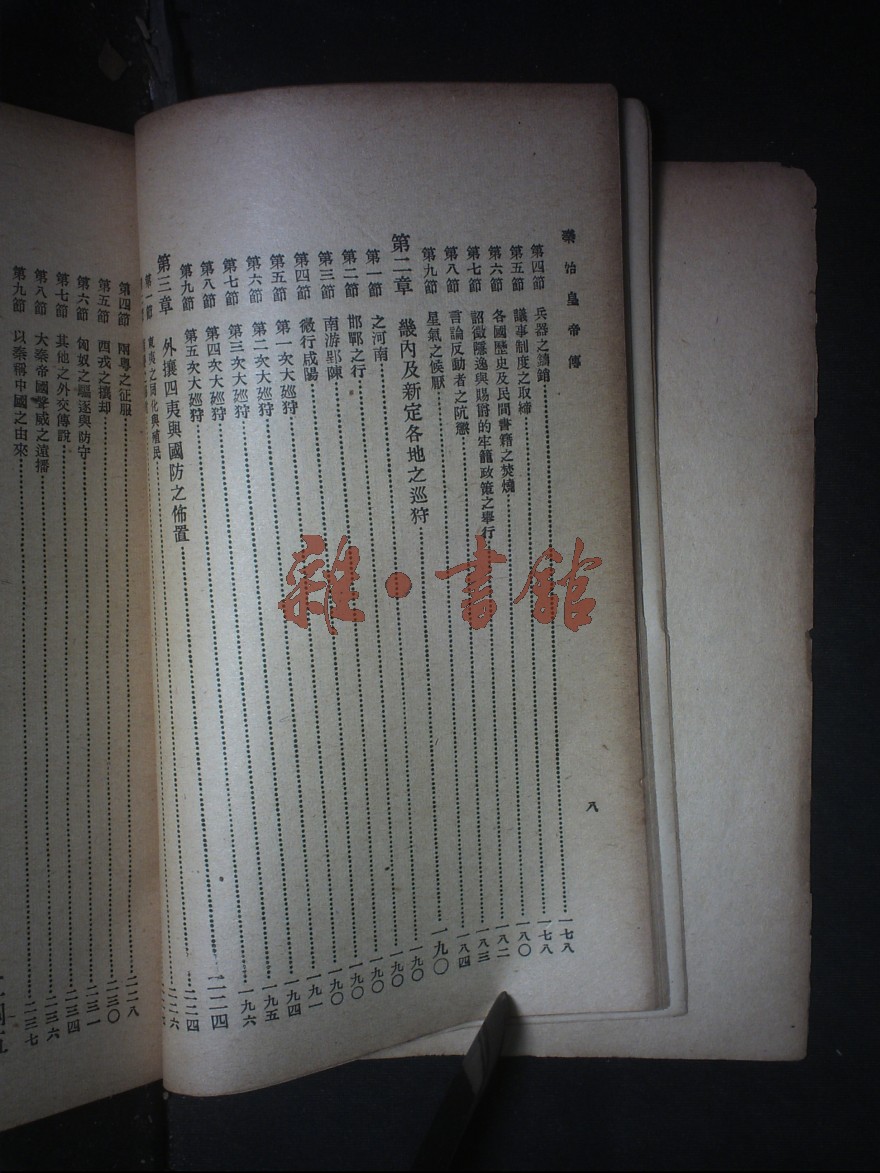 秦始皇帝傳
第四節 兵器之鑄銷……一七八
第五節 議事制度之取締……一七八
第六節 各國歷史及民間書籍之焚燒……一八〇
第七節 詔徵隱逸與賜爵的牢籠政策之舉行……一八二
第八節 言論反動者之阬懲……一八三
第九節 星氣之候厭……一八四
第二章 畿內及新定各地之巡狩……一九〇
第一節 之河南……一九〇
第二節 邯鄲之行……一九〇
第三節 南游郢陳……一九〇
第四節 微行咸陽……一九〇
第五節 第一次大巡狩……一九〇
第六節 第二次大巡狩……一九一
第七節 第三次大巡狩……一九四
第八節 第四次大巡狩……一九五
第九節 第五次大巡狩……一九六
第三章 外攘四夷與國防之佈置……二二四
第一節 之同化與殖民……二二四
二二六
八
第四節 兩粵之征服……二二八
第五節 西戎之攘却……二三〇
第六節 匈奴之驅逐與防守……二三一
第七節 其他之外交傳說……二三四
第八節 大秦帝國聲威之遠播……二三六
第九節 以秦稱中國之由來……二三七
雜·書館